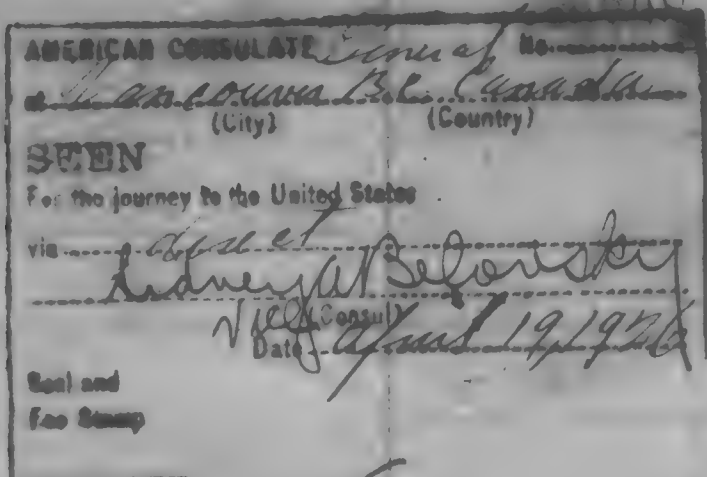 AMERICAN CONSULATE General No.
at Vancouver B.C. Canada
(City) (Country)
SEEN
For the journey to the United States
via direct
Sidney A Belovsky
Vice (Consul)
Date April 19, 1926
Seal and
Fee Stamp